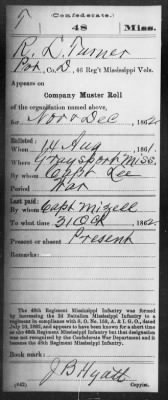 T (Confederate.)
48 Miss.
R. L. Turner
Pvt, Co. D, 46 Reg't Mississippi Vols.
Appears on
Company Muster Roll
of the organization named above,
for Nov & Dec, 1862.
Enlisted:
When 14 Aug, 1861.
Where Graysport Miss.
By whom Capt Lee
Period War
Last paid:
By whom Capt Mizell
To what time 31 Oct, 1862.
Present or absent Present
Remarks:
The 48th Regiment Mississippi Infantry was formed
by increasing the 2d Battalion Mississippi Infantry to a
regiment in compliance with S. O. No. 168, A. I. G. O., dated
July 19, 1862, and appears to have been known for a short time
as also 48th Regiment Mississippi Infantry but this designation
was not recognized by the Confederate War Department and it
became the 48th Regiment Mississippi Infantry.
Book mark:
J B Hyatt
(642) Copyist.